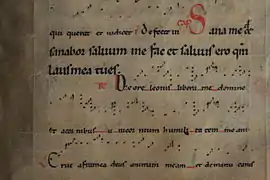 qui querat et iudicet Defecit in Sana me d
sanabor saluum me fac et saluus ero qm
laus mea tu es.
De ore leonis libera me domine
et a cornibus u nicor nium humili ta tem me am
Erue a framea deus animam meam et de manu canis